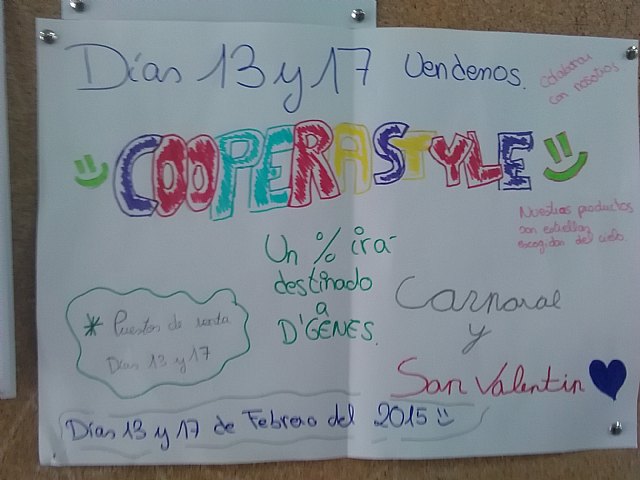 Días 13 y 17 Vendemos.
Colaborar
con nosotros
COOPERASTYLE
Nuestros productos
son estrellas
escogidas del cielo.
Un % irá
destinado
a
D'GENES.
Carnaval
y
San Valentín
* Puestos de venta
Días 13 y 17
Días 13 y 17 de Febrero del 2015